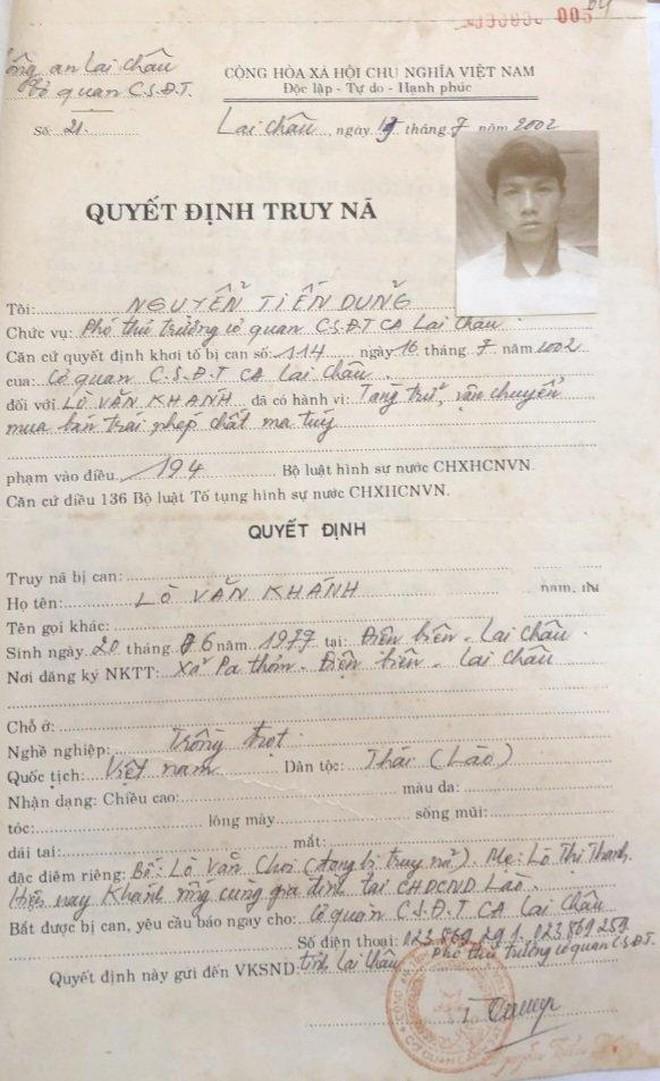 005
Công an Lai Châu
Cơ quan C.S.Đ.T.
CỘNG HÒA XÃ HỘI CHỦ NGHĨA VIỆT NAM
Độc lập - Tự do - Hạnh phúc
Số: 21
Lai Châu, ngày 19 tháng 7 năm 2002
QUYẾT ĐỊNH TRUY NÃ
Tôi: NGUYỄN TIẾN DŨNG
Chức vụ: Phó thủ trưởng cơ quan C.S.Đ.T CA Lai Châu
Căn cứ quyết định khởi tố bị can số: 114 ngày 16 tháng 7 năm 2002
của: Cơ quan C.S.Đ.T CA Lai Châu.
đối với LÒ VĂN KHÁNH đã có hành vi: Tàng trữ, vận chuyển
mua bán trái phép chất ma túy
phạm vào điều 194 Bộ luật hình sự nước CHXHCNVN.
Căn cứ điều 136 Bộ luật Tố tụng hình sự nước CHXHCNVN.
QUYẾT ĐỊNH
Truy nã bị can:
Họ tên: LÒ VĂN KHÁNH nam, nữ
Tên gọi khác:
Sinh ngày 20 tháng 6 năm 1979 tại: Điện biên - Lai Châu.
Nơi đăng ký NKTT: Xã Pa thơm - Điện biên - Lai Châu
Chỗ ở:
Nghề nghiệp: Trồng trọt.
Quốc tịch: Việt nam Dân tộc: Thái (Lào)
Nhận dạng: Chiều cao: màu da:
tóc: lông mày sống mũi:
dái tai: mắt:
đặc điểm riêng: Bố: Lò Văn Chơi (đang bị truy nã). Mẹ: Lò Thị Thanh.
Hiện nay Khánh sống cùng gia đình tại CHDCND Lào.
Bắt được bị can, yêu cầu báo ngay cho: Cơ quan C.S.Đ.T CA Lai Châu
Số điện thoại: 023 869 291. 023 869 259
Quyết định này gửi đến VKSND: tỉnh Lai Châu Phó thủ trưởng cơ quan C.S.Đ.T.